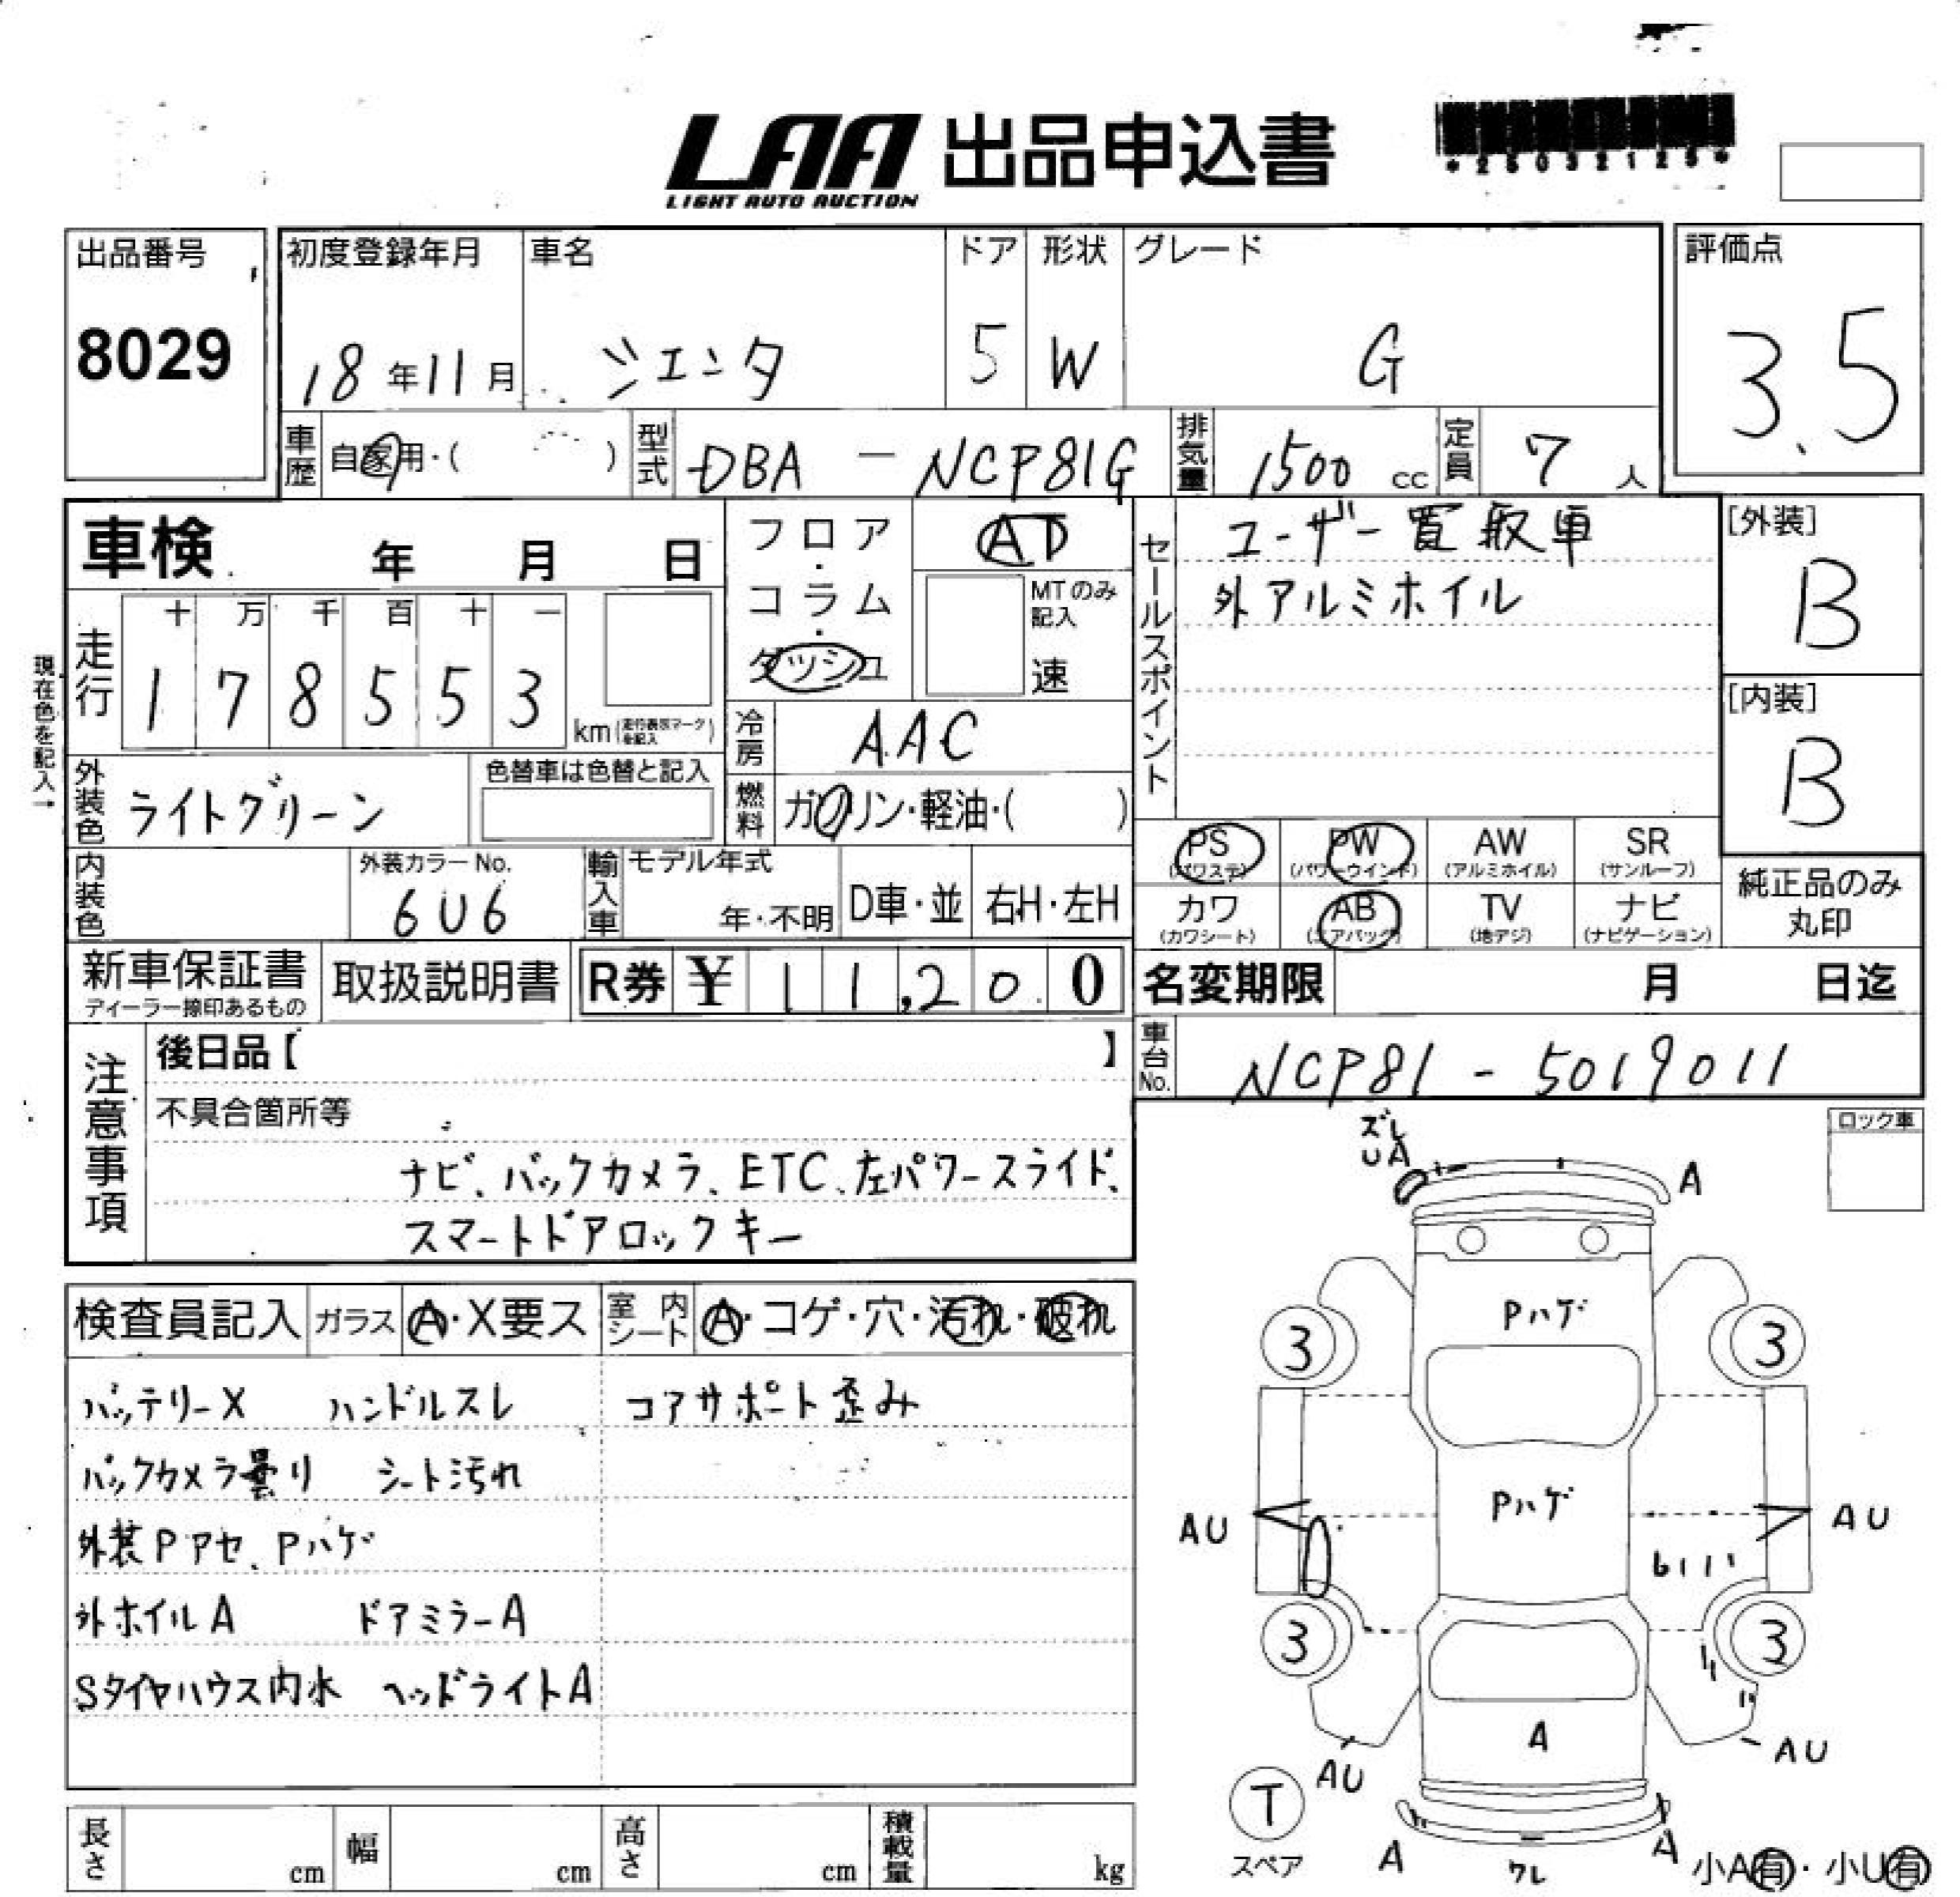 LAA 出品申込書
LIGHT AUTO AUCTION
出品番号
8029
初度登録年月
18年11月
車名
シエンタ
ドア
5
形状
W
グレード
G
評価点
3.5
車歴
自家用・( )
型式
DBA - NCP81G
排気量
1500 cc
定員
7 人
車検 年 月 日
フロア・コラム・ダッシュ
AT
MTのみ記入
速
走行
十 万 千 百 十 一
1 7 8 5 5 3
km(走行表示マークを記入)
現在色を記入→
冷房
AAC
外装色
ライトグリーン
色替車は色替と記入
燃料
ガソリン・軽油・( )
内装色
外装カラーNo.
6U6
輸入車
モデル年式
年・不明
D車・並
右H・左H
セールスポイント
ユーザー買取車
外アルミホイル
[外装]
B
[内装]
B
PS
(パワステ)
PW
(パワーウインド)
AW
(アルミホイル)
SR
(サンルーフ)
カワ
(カワシート)
AB
(エアバック)
TV
(地デジ)
ナビ
(ナビゲーション)
純正品のみ
丸印
新車保証書
ディーラー捺印あるもの
取扱説明書
R券 ¥ 11,200
名変期限 月 日迄
車台No.
NCP81 - 5019011
注意事項
後日品【 】
不具合箇所等
ナビ、バックカメラ、ETC、左パワースライド、
スマートドアロックキー
検査員記入
ガラス
A・X要ス
室内シート
A・コゲ・穴・汚れ・破れ
バッテリーX ハンドルスレ コアサポート歪み
バックカメラ曇り シート汚れ
外装Pアセ、Pハゲ
外ホイルA ドアミラーA
Sタイヤハウス内水 ヘッドライトA
長さ cm
幅 cm
高さ cm
積載量 kg
ロック車
ズレ
UA
A
Pハゲ
3
3
Pハゲ
AU
AU
3
3
A
AU
AU
T
スペア
A
ワレ
A
小A有・小U有